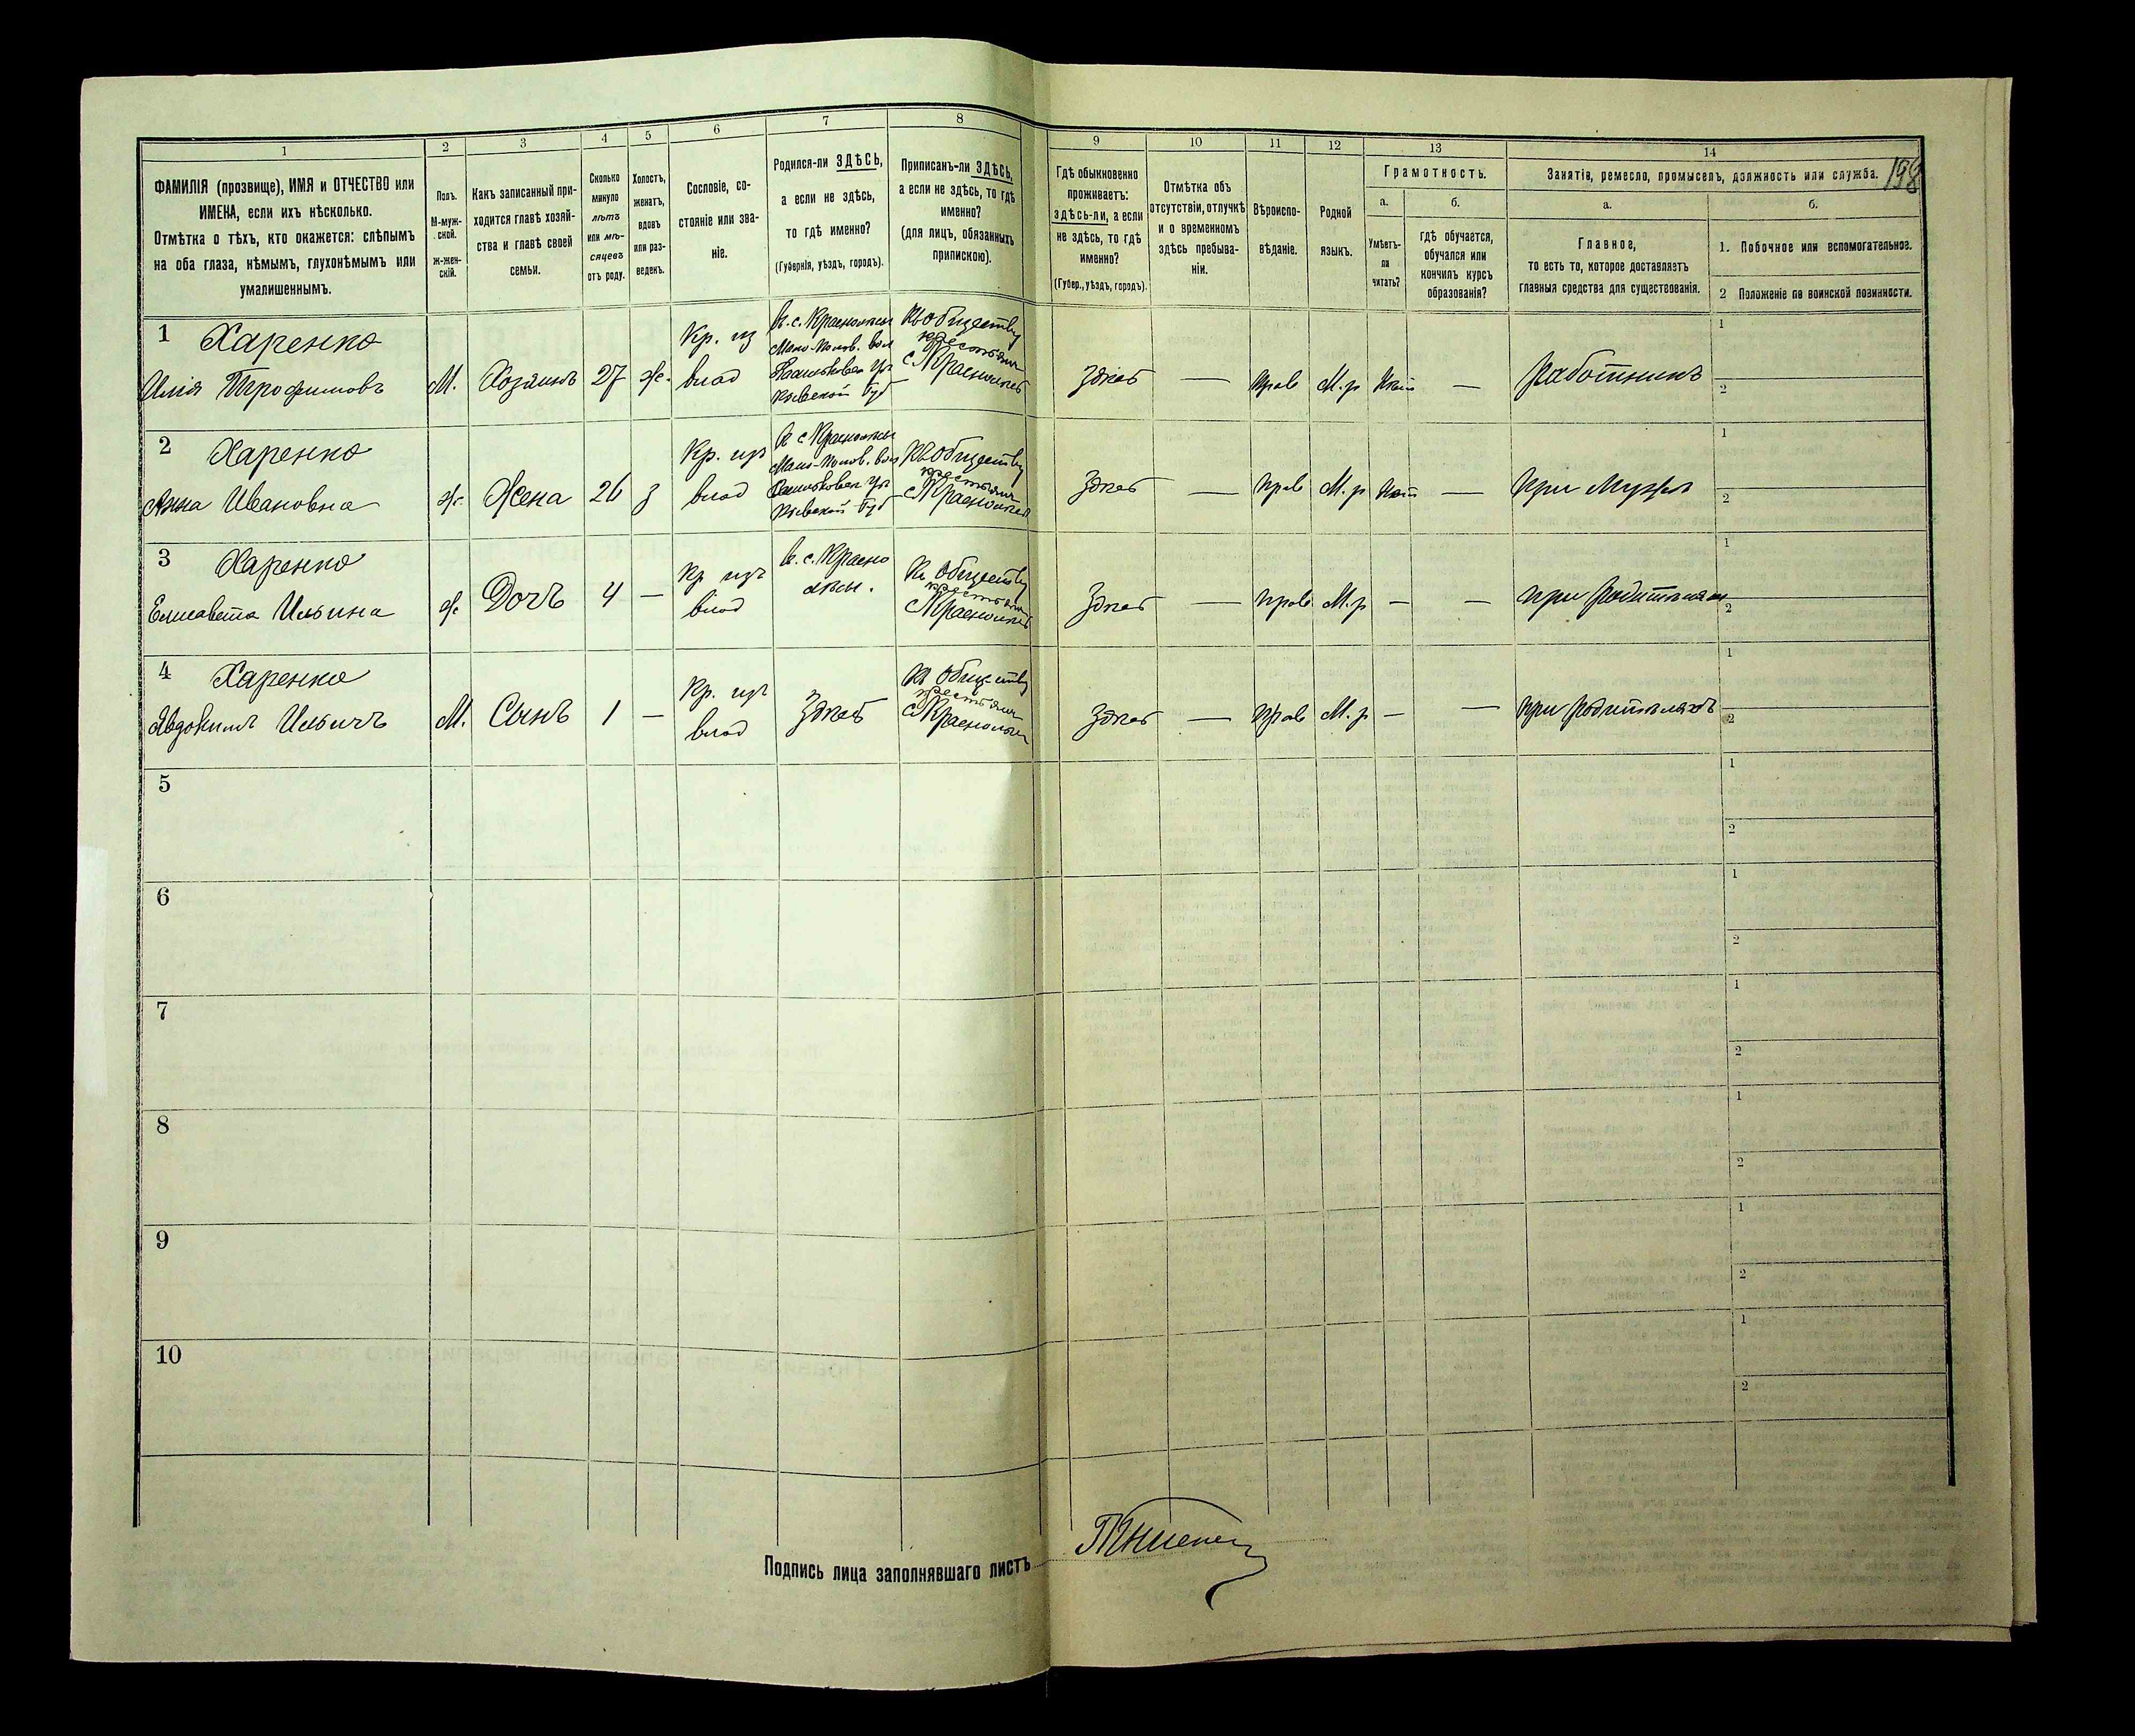 198
1 2 3 4 5 6 7 8 9 10 11 12 13 14
ФАМИЛІЯ (прозвище), ИМЯ и ОТЧЕСТВО или
ИМЕНА, если ихъ нѣсколько.
Отмѣтка о тѣхъ, кто окажется: слѣпымъ
на оба глаза, нѣмымъ, глухонѣмымъ или
умалишеннымъ.
Полъ.
М-муж-
ской.
Ж-жен-
скій.
Какъ записанный при-
ходится главѣ хозяй-
ства и главѣ своей
семьи.
Сколько
минуло
лѣтъ
или мѣ-
сяцевъ
отъ роду.
Холостъ,
женатъ,
вдовъ
или раз-
веденъ.
Сословіе, со-
стояніе или зва-
ніе.
Родился-ли ЗДѢСЬ,
а если не здѣсь,
то гдѣ именно?
(Губернія, уѣздъ, городъ).
Приписанъ-ли ЗДѢСЬ,
а если не здѣсь, то гдѣ
именно?
(для лицъ, обязанныхъ
припискою).
Гдѣ обыкновенно
проживаетъ:
здѣсь-ли, а если
не здѣсь, то гдѣ
именно?
(Губер., уѣздъ, городъ).
Отмѣтка объ
отсутствіи, отлучкѣ
и о временномъ
здѣсь пребыва-
ніи.
Вѣроиспо-
вѣданіе.
Родной
языкъ.
Грамотность.
а.
Умѣетъ-
ли
читать?
б.
гдѣ обучается,
обучался или
кончилъ курсъ
образованія?
Занятіе, ремесло, промыселъ, должность или служба.
а.
Главное,
то есть то, которое доставляетъ
главныя средства для существованія.
б.
1. Побочное или вспомогательное.
2 Положеніе по воинской повинности.
1 Харенко
Илія Трофимовъ
М.
Хозяинъ
27
ж.
Кр. из
влад
Въ с. Красноселки
Кіевской Губ
Къ обществу
крестьян
с Красноселки
Здѣсь
—
прав
М. р
Нѣт
—
работникъ
1
2
2 Харенко
Анна Ивановна
ж.
Жена
26
з
Кр. изъ
влад
Въ с Красноселки
Кіевской Губ
Къ обществу
крестьян
с Красноселки
Здѣсь
—
прав
М. р
Нѣт
—
при мужѣ
1
2
3 Харенко
Елисавета Ильина
ж
Дочь
4
—
Кр изъ
влад
Въ с. Красно
селки.
Къ обществу
крестьян
с Красноселки
Здѣсь
—
прав
М. р
—
—
при родителяхъ
1
2
4 Харенко
Авдокимъ Ильичъ
М.
Сынъ
1
—
Кр. изъ
влад
Здѣсь
Къ обществу
крестьян
с Красноселки
Здѣсь
—
прав
М. р
—
—
при родителяхъ
1
2
5
1
2
6
1
2
7
1
2
8
1
2
9
1
2
10
1
2
Подпись лица заполнявшаго листъ